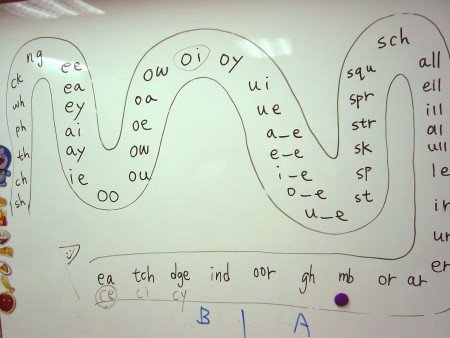 sh
ch
th
ph
wh
ck
ng
ee
ea
ey
ai
ay
ie
oo
ou
ow
oe
oa
ow
oi
oy
ui
ue
a_e
e_e
i_e
o_e
u_e
st
sp
sk
str
spr
squ
sch
all
ell
ill
al
ull
le
ir
ur
er
ea tch dge ind oor gh mb or ar
ce ci cy
B | A